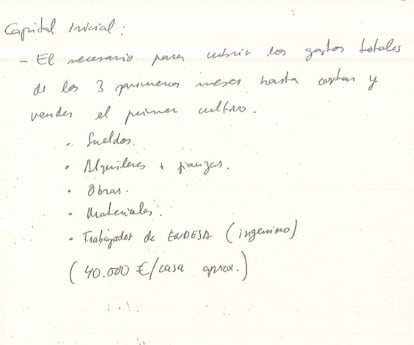 Capital Inicial:
- El necesario para cubrir los gastos totales
de los 3 primeros meses hasta cortar y
vender el primer cultivo.
· Sueldos.
· Alquileres + fianzas.
· Obras.
· Materiales.
· Trabajador de ENDESA (ingeniero)
(40.000 €/casa aprox.)